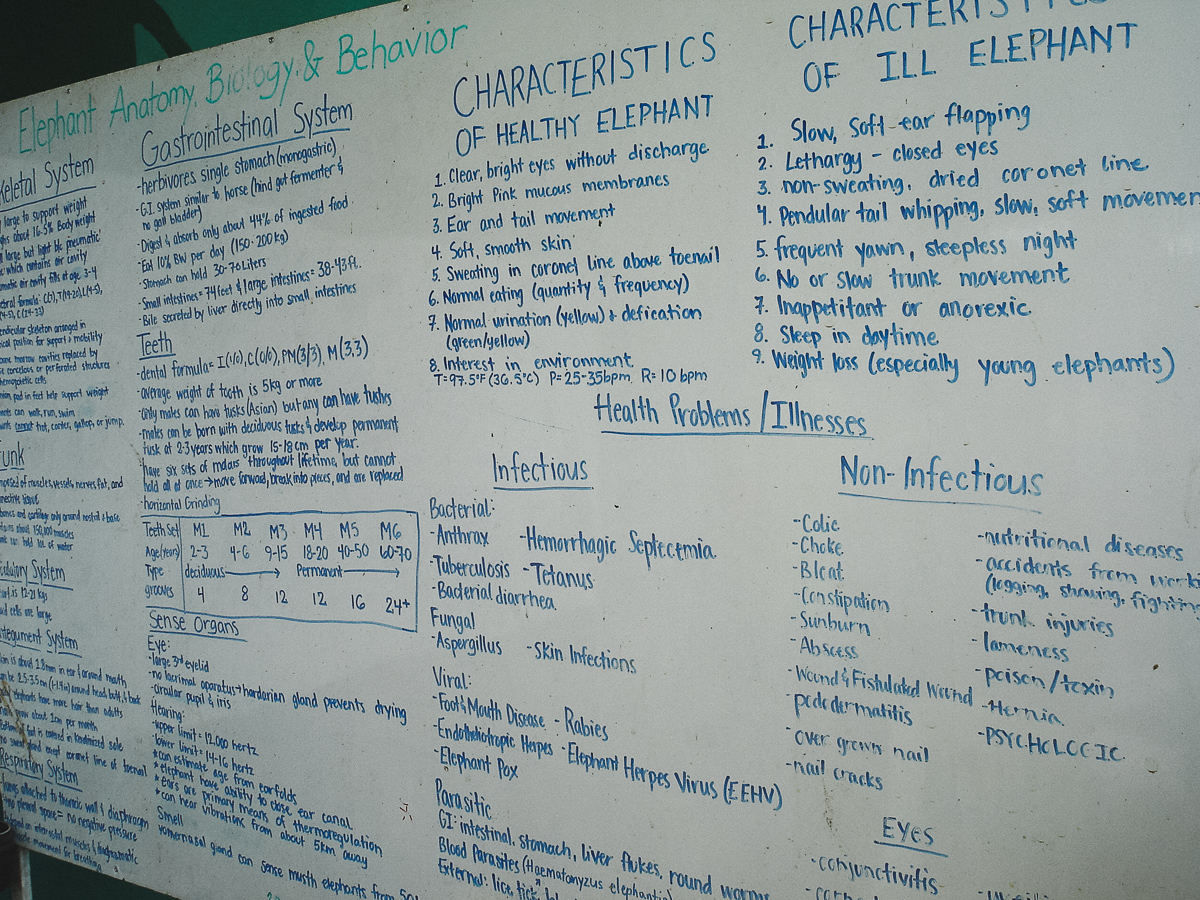 Elephant Anatomy, Biology, & Behavior
Skeletal System
large to support weight
about 16.5% Body weight
large but light b/c pneumatic
which contains air cavity
air cavity fills at age 3-4
skeleton arranged in
position for support & mobility
marrow cavities replaced by
or perforated structures
pad in feet help support weight
can walk, run, swim
cannot trot, canter, gallop, or jump.
Trunk
of muscles, vessels, nerves, fat, and
tissue
bones and cartilage only around nostril & base
about 150,000 muscles
System
is 12-21 kgs
cells are large
Integument System
is about 1.8mm in ear & around mouth
2.5-3.5cm (1-1.4in) around head, butt, & back
elephants have more hair than adults
grow about 1cm per month
is covered in keratinized sole
coronet line of toenail
Respiratory System
attached to thoracic wall & diaphragm
pleural space = no negative pressure
muscles &
movement for breathing
Gastrointestinal System
-herbivores single stomach (monogastric)
-G.I. system similar to horse (hind gut fermenter &
no gall bladder)
-Digest & absorb only about 44% of ingested food
-Eat 10% BW per day (150-200kg)
-Stomach can hold 30-70 Liters
-Small intestines = 74 feet & large intestines = 38-43 ft.
-Bile secreted by liver directly into small intestines
Teeth
-dental formula = I(1/0), C(0/0), PM(3/3), M(3,3)
-average weight of tooth is 5kg or more
-only males can have tusks (Asian) but any can have tushes
-males can be born with deciduous tusks & develop permanent
tusk at 2-3 years which grow 15-18cm per year.
-have six sets of molars throughout lifetime, but cannot
hold all at once → move forward, break into pieces, and are replaced
-horizontal Grinding
Teeth Set M1 M2 M3 M4 M5 M6
Age(Years) 2-3 4-6 9-15 18-20 40-50 60-70
Type deciduous → Permanent →
grooves 4 8 12 12 16 24+
Sense Organs
Eye:
-large 3rd eyelid
-no lacrimal aparatus → hardarian gland prevents drying
-circular pupil & iris
Hearing:
-upper limit = 12,000 hertz
-lower limit = 14-16 hertz
*can estimate age from earfolds
*elephant have ability to close ear canal
*ears are primary means of thermoregulation
*can hear vibrations from about 5km away
Smell
vomernasal gland can sense musth elephants from
CHARACTERISTICS
OF HEALTHY ELEPHANT
1. Clear, bright eyes without discharge
2. Bright Pink mucous membranes
3. Ear and tail movement
4. Soft, smooth skin
5. Sweating in coronel line above toenail
6. Normal eating (quantity & frequency)
7. Normal urination (yellow) & defication
(green/yellow)
8. Interest in environment
T=97.5°F (36.5°C) P=25-35bpm R=10 bpm
CHARACTERISTICS
OF ILL ELEPHANT
1. Slow, Soft ear flapping
2. Lethargy - closed eyes
3. non-sweating, dried coronet line
4. Pendular tail whipping, slow, soft movemen
5. frequent yawn, sleepless night
6. No or slow trunk movement
7. Inappetitant or anorexic
8. Sleep in daytime
9. Weight loss (especially young elephants)
Health Problems/Illnesses
Infectious
Bacterial:
-Anthrax -Hemorrhagic Septecemia
-Tuberculosis -Tetanus
-Bacterial diarrhea
Fungal
-Aspergillus -Skin Infections
Viral:
-Foot & Mouth Disease -Rabies
-Endotheliotropic Herpes -Elephant Herpes Virus (EEHV)
-Elephant Pox
Parasitic
GI: intestinal, stomach, liver flukes, round worms
Blood Parasites (Haematomyzus elephantis)
External: lice, tick,
Non-Infectious
-Colic
-Choke
-Bloat
-Constipation
-Sunburn
-Abscess
-Wound & Fistulated Wound
-pododermatitis
-over grown nail
-nail cracks
-nutritional diseases
-accidents from worki
(logging, showing, fighting
-trunk injuries
-lameness
-poison/toxin
-Hernia
-PSYCHOLOGIC
Eyes
-conjunctivitis